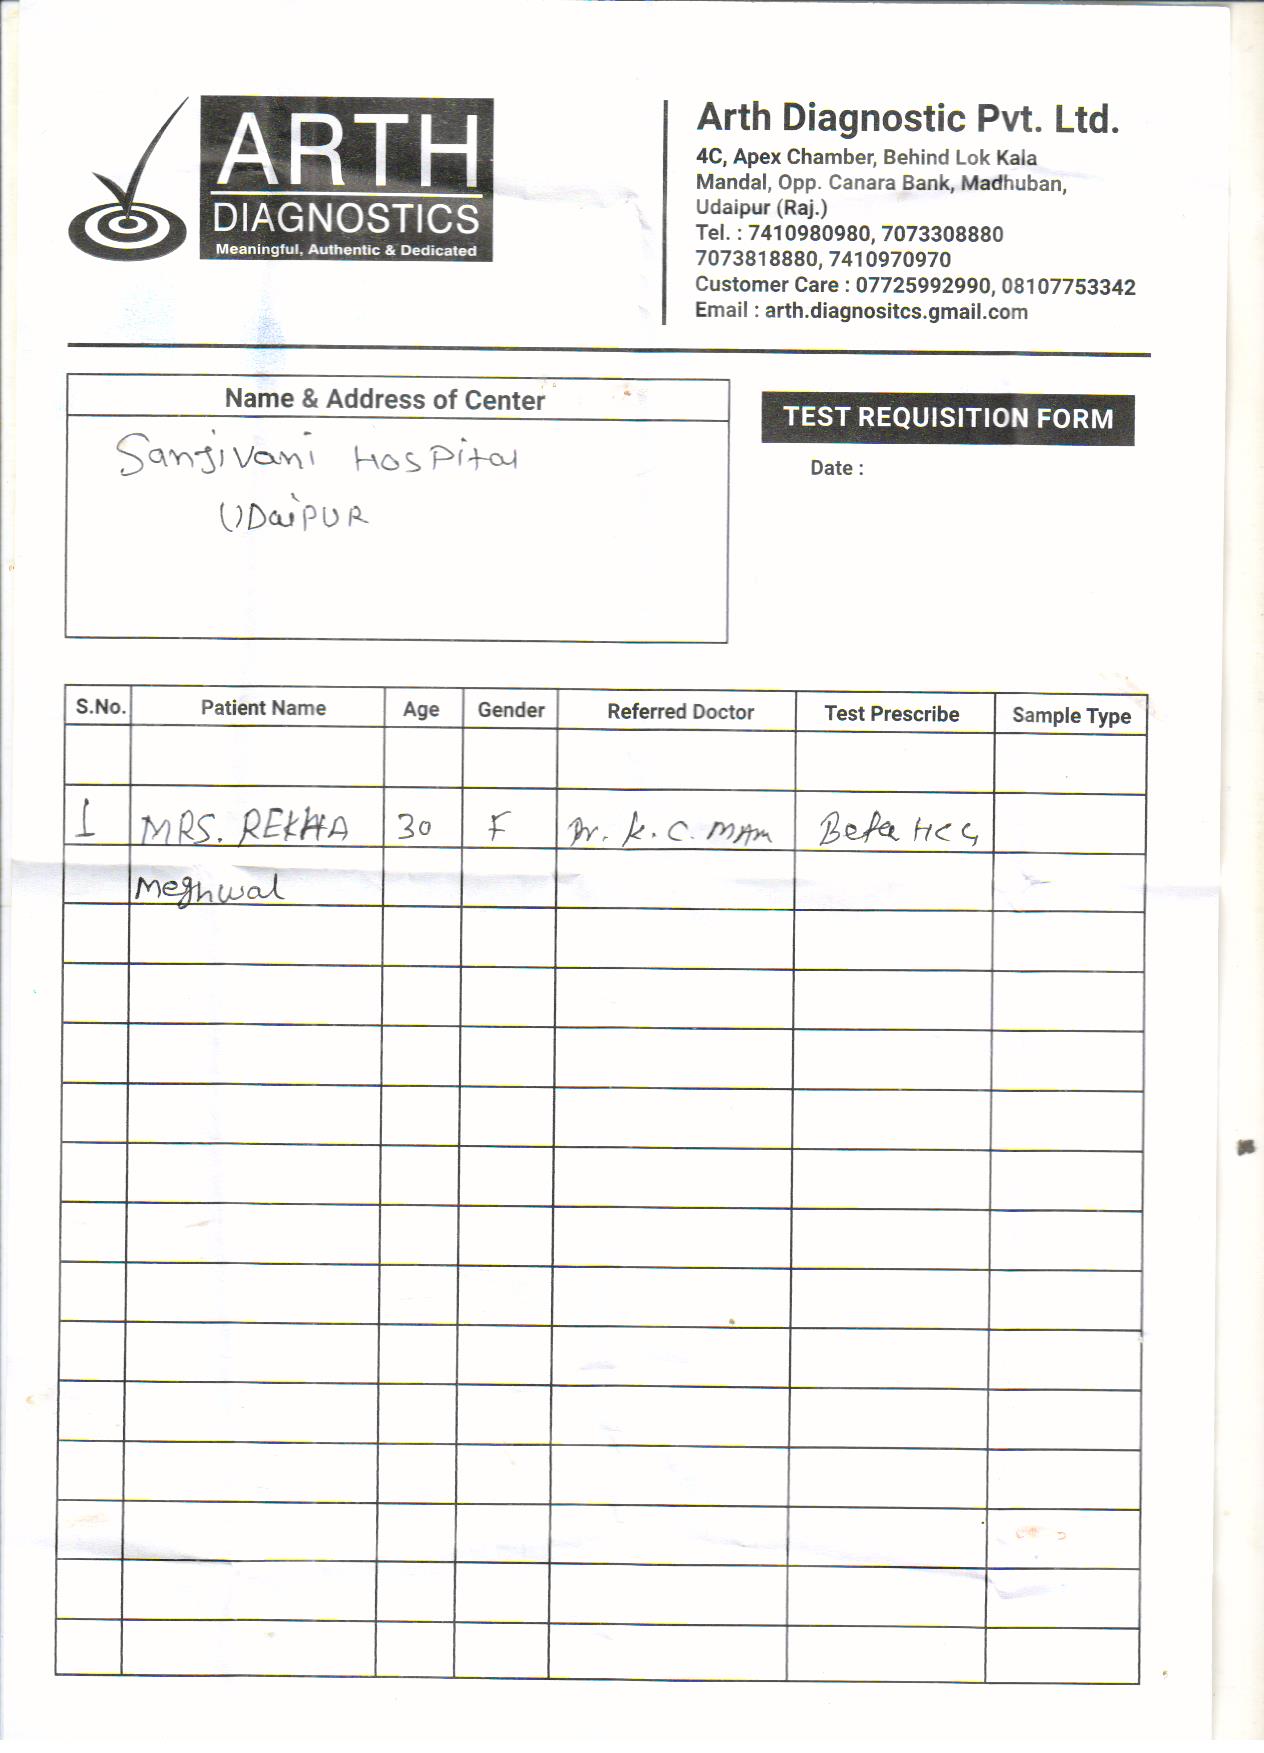 ARTH
DIAGNOSTICS
Meaningful, Authentic & Dedicated
Arth Diagnostic Pvt. Ltd.
4C, Apex Chamber, Behind Lok Kala
Mandal, Opp. Canara Bank, Madhuban,
Udaipur (Raj.)
Tel. : 7410980980, 7073308880
7073818880, 7410970970
Customer Care : 07725992990, 08107753342
Email : arth.diagnositcs.gmail.com
Name & Address of Center
Sanjivani Hospital
UDaiPUR
TEST REQUISITION FORM
Date :
S.No. Patient Name Age Gender Referred Doctor Test Prescribe Sample Type
1 MRS. REKHA 30 F Dr. K. C. MAM Beta HCG
Meghwal